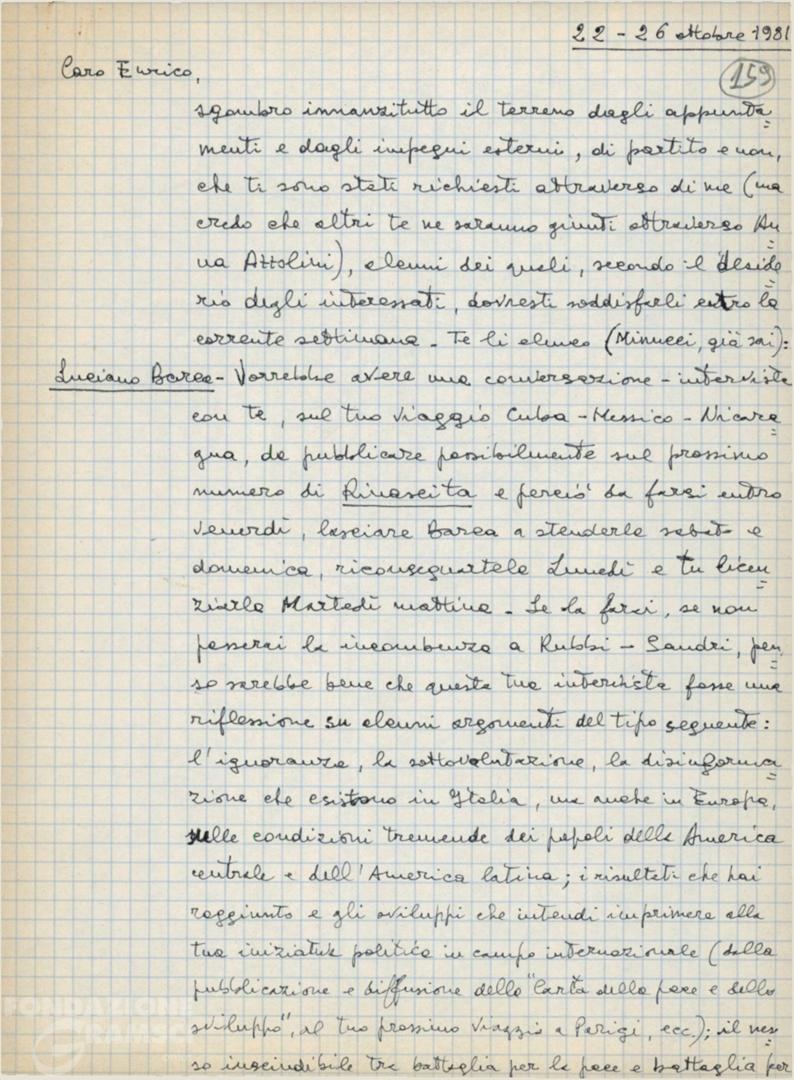 22 - 26 ottobre 1981
159
Caro Enrico,
sgombro innanzitutto il terreno dagli appunta=
menti e dagli impegni esterni, di partito e non,
che ti sono stati richiesti attraverso di me (ma
credo che altri te ne saranno giunti attraverso An=
na Azzolini), alcuni dei quali, secondo il deside=
rio degli interessati, dovresti soddisfarli entro la
corrente settimana. Te li elenco (Minucci, già sai):
Luciano Barca - Vorrebbe avere una conversazione - intervista
con te, sul tuo viaggio Cuba - Messico - Nicara=
gua, da pubblicare possibilmente sul prossimo
numero di Rinascita e perciò da farsi entro
venerdì, lasciare Barca a stenderla sabato e
domenica, riconsegnartela Lunedì e tu licen=
ziarla Martedì mattina. Se la farai, se non
passerai la incombenza a Rubbi - Sandri, pen=
so sarebbe bene che questa tua intervista fosse una
riflessione su alcuni argomenti del tipo seguente:
l'ignoranza, la sottovalutazione, la disinforma=
zione che esistono in Italia, ma anche in Europa,
sulle condizioni tremende dei popoli della America
centrale e dell'America latina; i risultati che hai
raggiunto e gli sviluppi che intendi imprimere alla
tua iniziativa politica in campo internazionale (dalla
pubblicazione e diffusione della "Carta della pace e dello
sviluppo", al tuo prossimo viaggio a Parigi, ecc.); il nes=
so inscindibile tra battaglia per la pace e battaglia per
FONDAZIONE
GRAMSCI